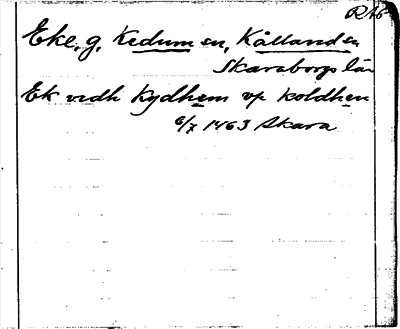 RAb
Eke, g, Kedum sn, Kålland sn,
Skaraborgs län
Ek vedh Kydhem vp koldhen
6/7 1463 Skara